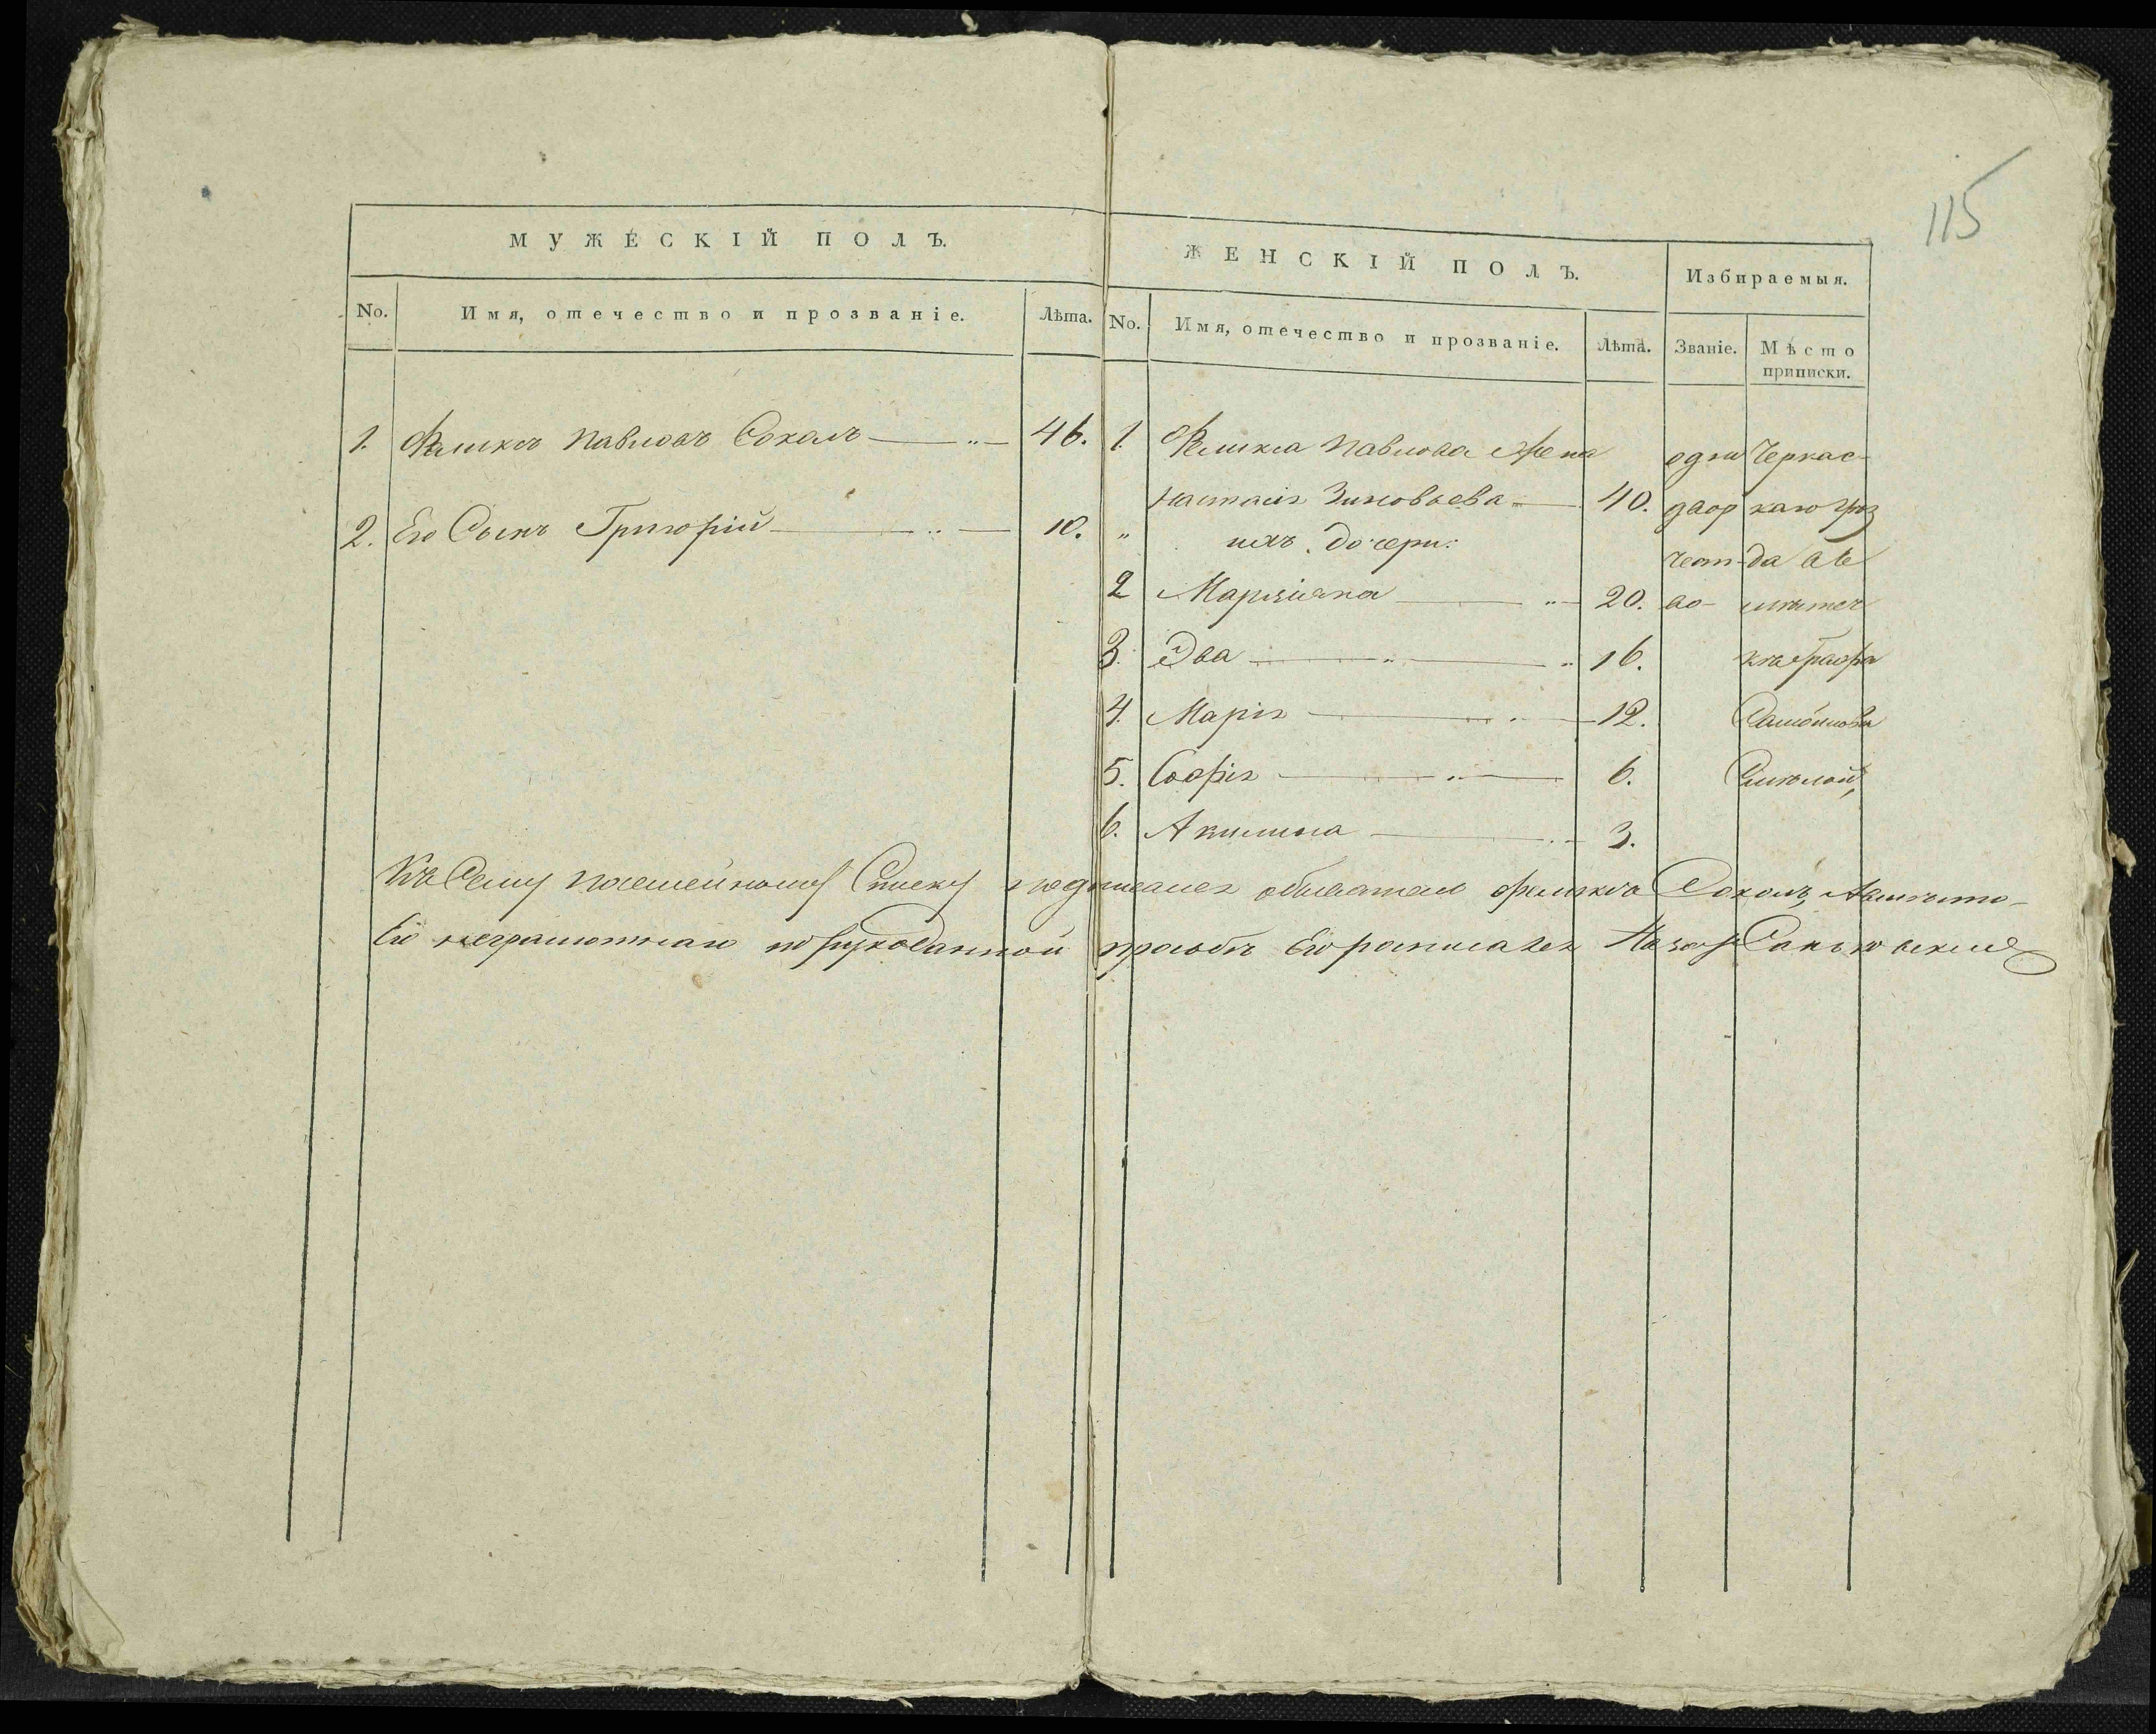 115
МУЖЕСКІЙ ПОЛЪ.
No. Имя, отечество и прозваніе. Лѣта.
1. Феликсъ Павловъ Соколъ 46.
2. Его Сынъ Григорій 10.
ЖЕНСКІЙ ПОЛЪ. Избираемыя.
No. Имя, отечество и прозваніе. Лѣта. Званіе. Мѣсто
приписки.
1. Феликса Павлова Жена одно Черкас-
Настасія Зиновьева 40. двор каго уѣз
" ихъ дочери: чест да въ
2 Марціяна 20. во-
3. Эва 16. графа
4. Марія 12. Самойлова
5. Софія 6. Смѣлой,
6. Акилина 3.
Къ Сему Посемейному Списку подписался обыватель Феликсъ Соколъ, А вместо
Его неграмотнаго по рукоданной прозьбѣ Его росписался